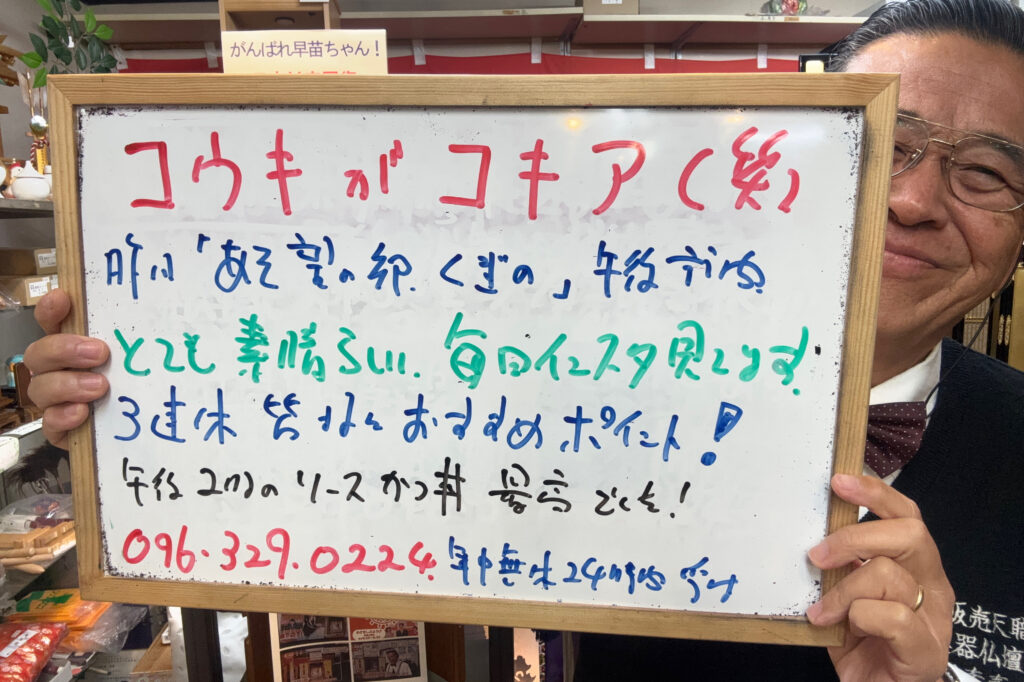 がんばれ早苗ちゃん！
コウキがコキア(笑)
昨日「あそ望の郷くぎの」午後訪問
とても素晴らしい.毎日インスタ見てます.
3連休皆様におすすめポイント!
午後2時のソースかつ丼最高でした!
096.329.0224. 年中無休24時間受付
販売天職
器仏壇